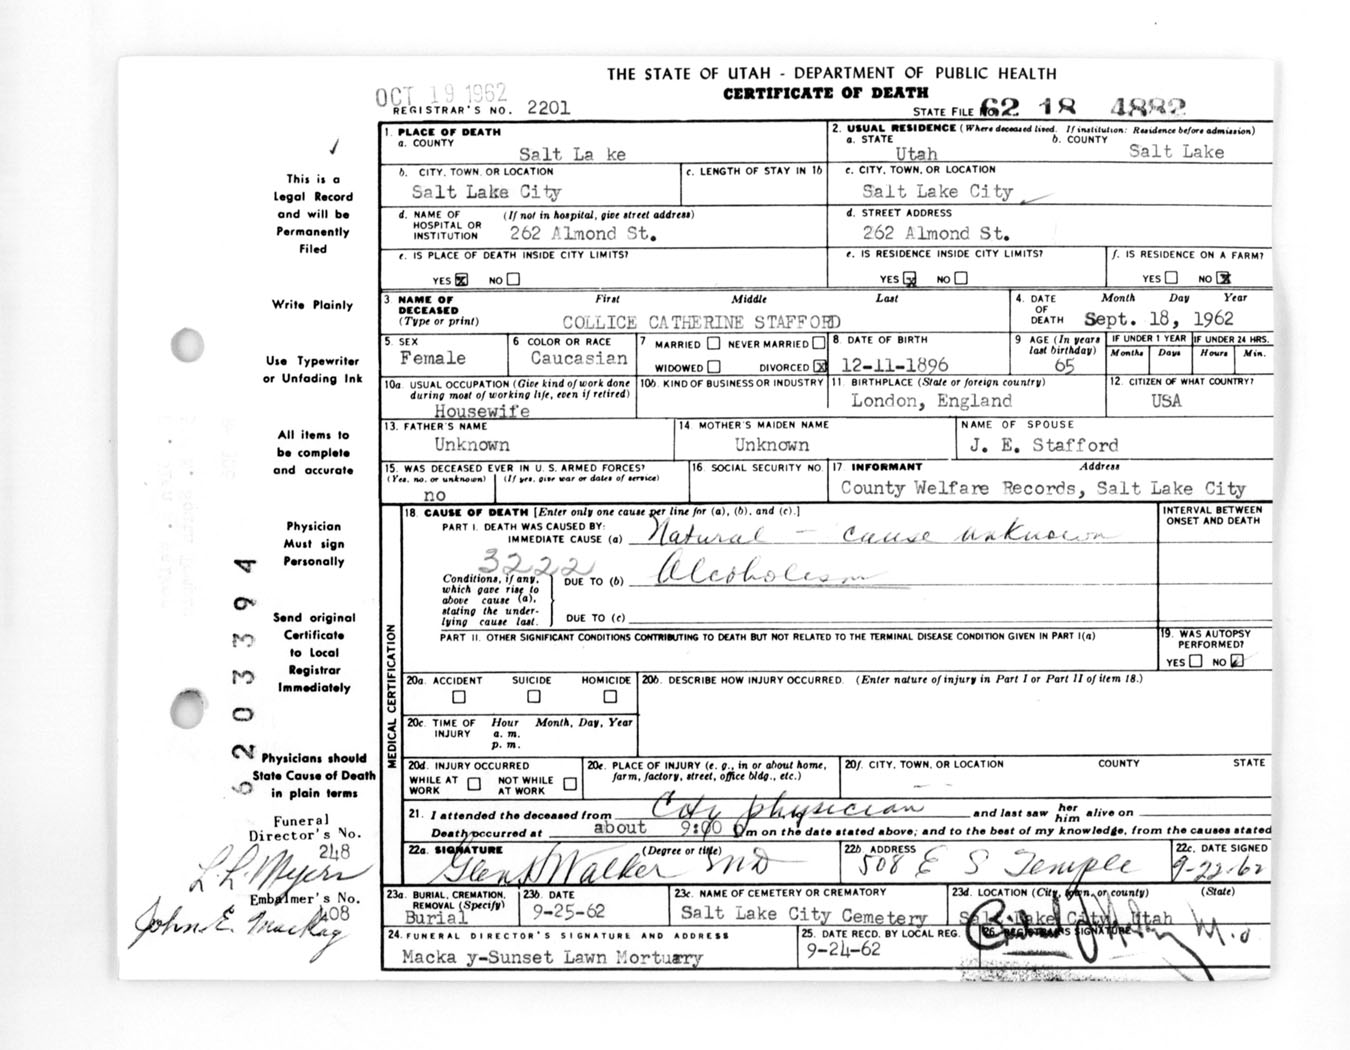 THE STATE OF UTAH - DEPARTMENT OF PUBLIC HEALTH
OCT 19 1962
CERTIFICATE OF DEATH
REGISTRAR'S NO. 2201
STATE FILE NO. 62 18 4882
This is a
Legal Record
and will be
Permanently
Filed
Write Plainly
Use Typewriter
or Unfading Ink
All items to
be complete
and accurate
Physician
Must sign
Personally
Send original
Certificate
to Local
Registrar
Immediately
Physicians should
State Cause of Death
in plain terms
Funeral
Director's No.
248
L. L. Myers
Embalmer's No.
408
John E. Mackay
6 20 3394
1. PLACE OF DEATH
a. COUNTY
Salt La ke
2. USUAL RESIDENCE (Where deceased lived. If institution: Residence before admission)
a. STATE
Utah
b. COUNTY
Salt Lake
b. CITY, TOWN, OR LOCATION
Salt Lake City
c. LENGTH OF STAY IN 1b
c. CITY, TOWN, OR LOCATION
Salt Lake City
d. NAME OF HOSPITAL OR INSTITUTION (If not in hospital, give street address)
262 Almond St.
d. STREET ADDRESS
262 Almond St.
e. IS PLACE OF DEATH INSIDE CITY LIMITS?
YES x NO
e. IS RESIDENCE INSIDE CITY LIMITS?
YES x NO
f. IS RESIDENCE ON A FARM?
YES NO x
3. NAME OF DECEASED (Type or print)
First Middle Last
COLLICE CATHERINE STAFFORD
4. DATE OF DEATH
Month Day Year
Sept. 18, 1962
5. SEX
Female
6 COLOR OR RACE
Caucasian
7 MARRIED NEVER MARRIED
WIDOWED DIVORCED x
8. DATE OF BIRTH
12-11-1896
9 AGE (In years last birthday)
65
IF UNDER 1 YEAR
Months Days
IF UNDER 24 HRS.
Hours Min.
10a. USUAL OCCUPATION (Give kind of work done during most of working life, even if retired)
Housewife
10b. KIND OF BUSINESS OR INDUSTRY
11. BIRTHPLACE (State or foreign country)
London, England
12. CITIZEN OF WHAT COUNTRY?
USA
13. FATHER'S NAME
Unknown
14. MOTHER'S MAIDEN NAME
Unknown
NAME OF SPOUSE
J. E. Stafford
15. WAS DECEASED EVER IN U. S. ARMED FORCES?
(Yes, no, or unknown) (If yes, give war or dates of service)
no
16. SOCIAL SECURITY NO.
17. INFORMANT Address
County Welfare Records, Salt Lake City
MEDICAL CERTIFICATION
18. CAUSE OF DEATH [Enter only one cause per line for (a), (b), and (c).]
INTERVAL BETWEEN ONSET AND DEATH
PART I. DEATH WAS CAUSED BY:
IMMEDIATE CAUSE (a) Natural - cause unknown
3222
Conditions, if any, which gave rise to above cause (a), stating the underlying cause last.
DUE TO (b) Alcoholism
DUE TO (c)
PART II. OTHER SIGNIFICANT CONDITIONS CONTRIBUTING TO DEATH BUT NOT RELATED TO THE TERMINAL DISEASE CONDITION GIVEN IN PART I(a)
19. WAS AUTOPSY PERFORMED?
YES NO
20a. ACCIDENT SUICIDE HOMICIDE
20b. DESCRIBE HOW INJURY OCCURRED. (Enter nature of injury in Part I or Part II of item 18.)
20c. TIME OF INJURY
Hour Month, Day, Year
a. m.
p. m.
20d. INJURY OCCURRED
WHILE AT WORK NOT WHILE AT WORK
20e. PLACE OF INJURY (e. g., in or about home, farm, factory, street, office bldg., etc.)
20f. CITY, TOWN, OR LOCATION COUNTY STATE
21. I attended the deceased from City physician and last saw her him alive on
Death occurred at about 9:00 pm on the date stated above; and to the best of my knowledge, from the causes stated
22a. SIGNATURE (Degree or title)
Glen Walker MD
22b. ADDRESS
508 E S Temple
22c. DATE SIGNED
9-22-62
23a. BURIAL, CREMATION, REMOVAL (Specify)
Burial
23b. DATE
9-25-62
23c. NAME OF CEMETERY OR CREMATORY
Salt Lake City Cemetery
23d. LOCATION (City, town, or county) (State)
Salt Lake City, Utah
24. FUNERAL DIRECTOR'S SIGNATURE AND ADDRESS
Macka y-Sunset Lawn Mortuary
25. DATE RECD. BY LOCAL REG.
9-24-62
26. REGISTRAR'S SIGNATURE